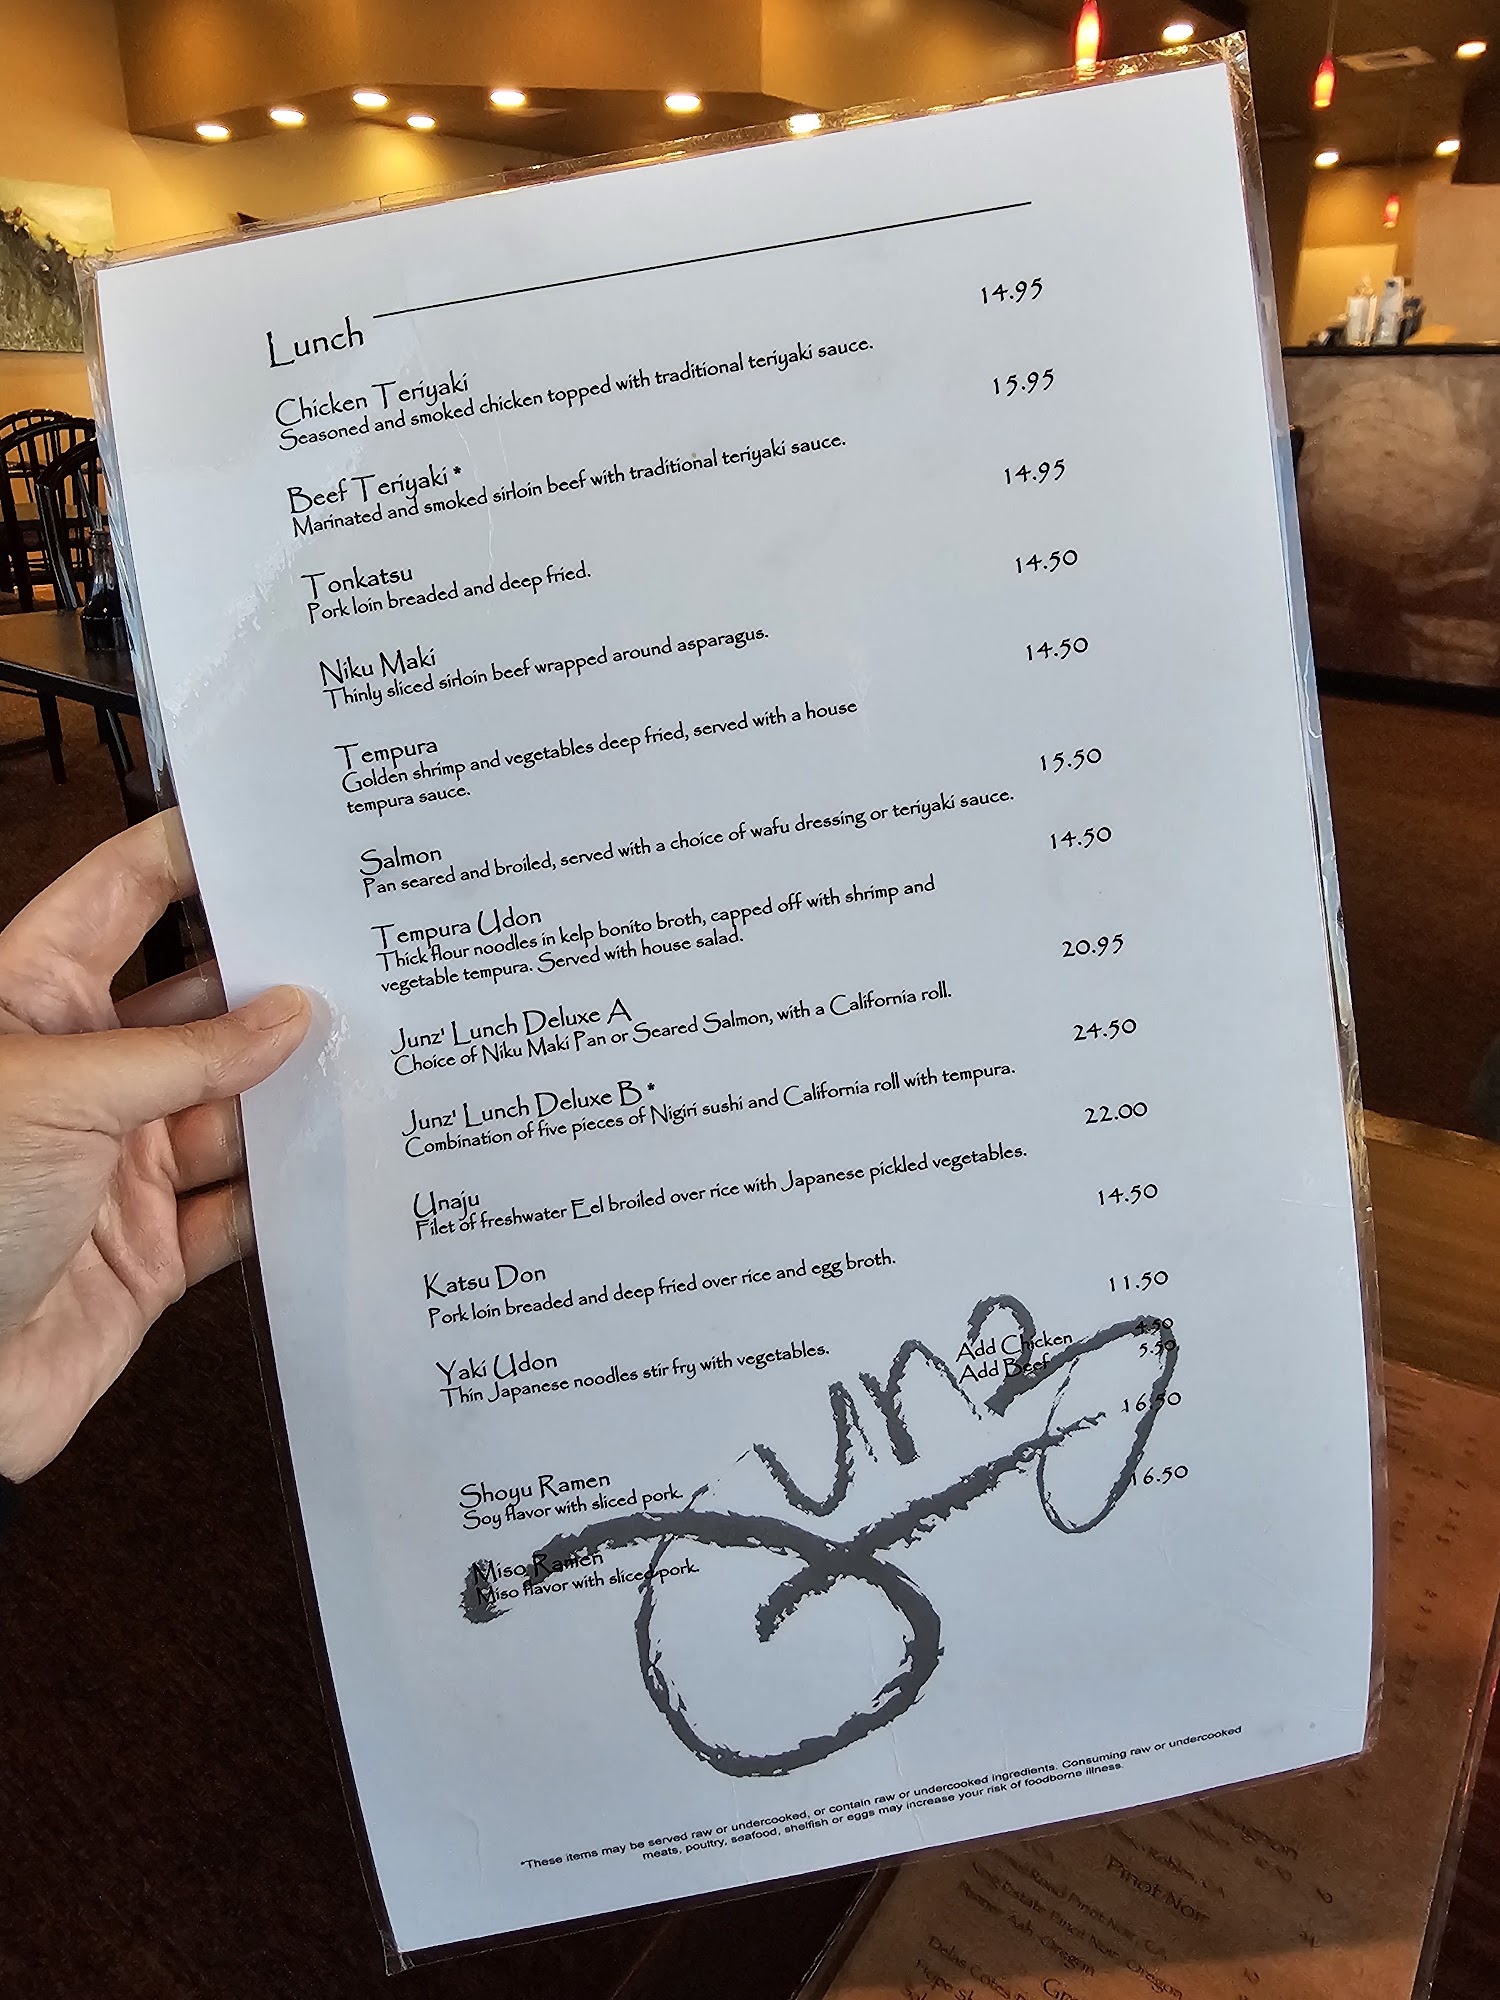 Lunch
Chicken Teriyaki 14.95
Seasoned and smoked chicken topped with traditional teriyaki sauce.
Beef Teriyaki * 15.95
Marinated and smoked sirloin beef with traditional teriyaki sauce.
Tonkatsu 14.95
Pork loin breaded and deep fried.
Niku Maki 14.50
Thinly sliced sirloin beef wrapped around asparagus.
Tempura 14.50
Golden shrimp and vegetables deep fried, served with a house
tempura sauce.
Salmon 15.50
Pan seared and broiled, served with a choice of wafu dressing or teriyaki sauce.
Tempura Udon 14.50
Thick flour noodles in kelp bonito broth, capped off with shrimp and
vegetable tempura. Served with house salad.
Junz' Lunch Deluxe A 20.95
Choice of Niku Maki Pan or Seared Salmon, with a California roll.
Junz' Lunch Deluxe B * 24.50
Combination of five pieces of Nigiri sushi and California roll with tempura.
Unaju 22.00
Filet of freshwater Eel broiled over rice with Japanese pickled vegetables.
Katsu Don 14.50
Pork loin breaded and deep fried over rice and egg broth.
Yaki Udon 11.50
Thin Japanese noodles stir fry with vegetables.
Add Chicken 4.50
Add Beef 5.50
Shoyu Ramen 16.50
Soy flavor with sliced pork.
Miso Ramen 16.50
Miso flavor with sliced pork.
*These items may be served raw or undercooked, or contain raw or undercooked ingredients. Consuming raw or undercooked
meats, poultry, seafood, shelfish or eggs may increase your risk of foodborne illness.
Pinot Noir